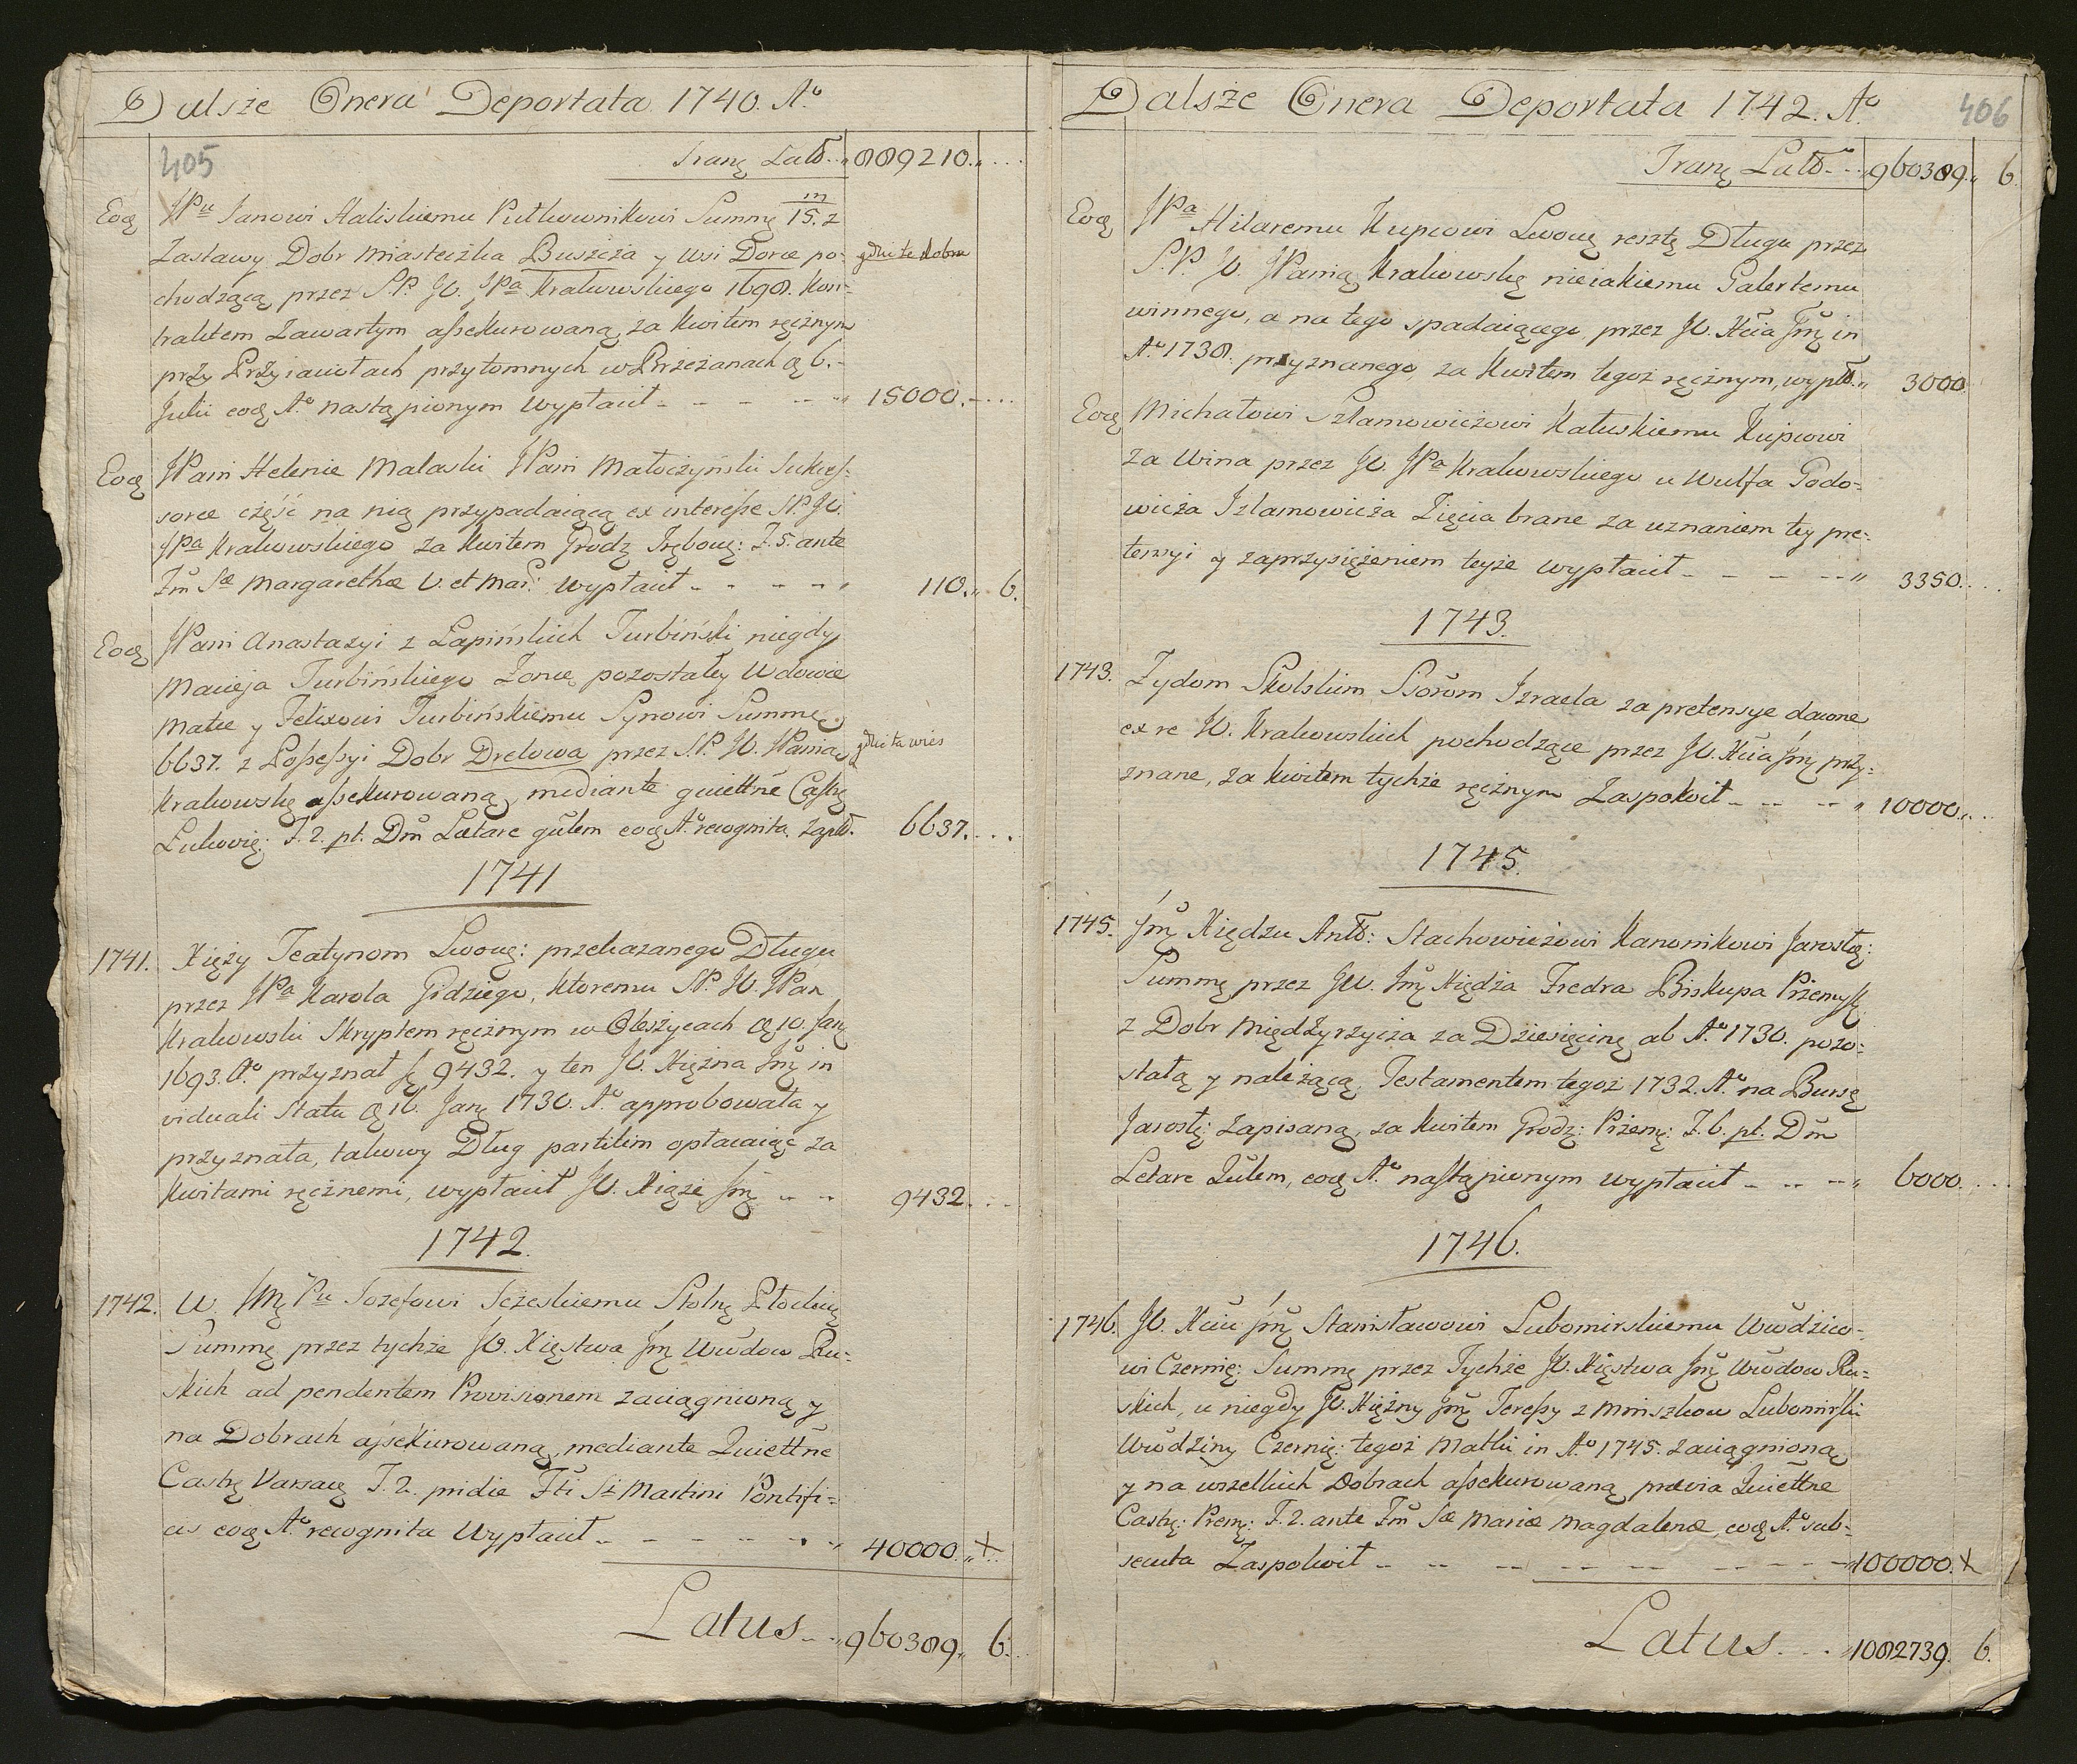 Dalsze Onera Deportata 1740. Aº
405
Tranꝫ Latꝰ „ 889210. „
Eoꝺ JPu Janowi Haliskiemu Pułkownikowi Summę 15. m z
Zastawy Dobr Miasteczka Buszcza y wsi Dorce po- gdzie te dobra
chodzącą przez S.P. JW. JPa Krakowskiego 1698. Kon-
traktem zawartym assekurowaną, za kwitem ręcznym
przy Przyiaciołach przytomnych w Brzeżanach ꝺ 6.
Julii eoꝺ Aº nastąpionym wypłacił - - - - „ 15000. -
Eoꝺ JPani Helenie Malaski JPani Małoczyński Sukces-
sorce część na nią przypadaiącą ex interesse S.P. JW.
JPa Krakowskiego za kwitem Grodꝫ Tręboweꝫ: F. 5. ante
Fm̃ Sæ Margarethæ V. et Mar: wypłacił - - - - „ 110. „ 6.
Eoꝺ JPani Anastazyi z Łapińskich Turbiński niegdy
Macieja Turbińskiego Żonie, pozostałey Wdowie
Matce y Felixowi Turbińskiemu Synowi Summę
6637. z Possessyi Dobr Drelowa przez S.P. JW. JPania gdzie ta wies
Krakowskę assekurowaną, mediante quiettñe Castrꝫ
Łukovię: F. 2. pt. Dm̃ Lætare gũlem eoꝺ Aº recognita zapłꝰ. 6637. . . .
1741
1741. Xięży Teatynom Lwoweꝫ: przekazanego Długu
przez JPa Karola Gidziego, ktoremu S.P. JW. JPan
Krakowski Skryptem ręcznym w Oleszycach ꝺ 10. Janꝫ
1693. Aº przyznał fꝫ 9432. y ten JO. Xiężna Jm̃ in
viduali Statu ꝺ 16. Janꝫ 1730. Aº approbowała y
przyznała, takowy Dług partitim opłacaiąc za
kwitami ręcznemi, wypłacił JO. Xiąże Jm̃ - - 9432. . .
1742.
1742. W. Jm̃ Pu Jozefowi Jezeskiemu Stolnꝫ Płockiꝫ
Summę przez tychże JO. Xięstwa Jm̃ Wwodow Ru-
skich ad pendentem Provisionem zaciągnioną y
na Dobrach assekurowaną, mediante Quiettñe
Castrꝫ Varsaꝫ F. 2. pridie Fti Sti Martini Pontifi-
cis eoꝺ Aº recognita wypłacił - - - - „ 40000. „ X
Latus - - „ 960389. „ 6.
Dalsze Onera Deportata 1742. Aº
406
Tranꝫ Latꝰ - - „ 960389. „ 6.
Eoꝺ JPa Hilaremu Kupcowi Lwowꝫ resztę Długu przez
S.P. JW. JPanią Krakowskę nieiakiemu Galertemu
winnego, a na tego spadaiącego, przez JO. Xcia Jm̃ in
Aº 1738. przyznanego, za kwitem tegoż ręcznym, wypłꝰ „ 3000.
Eoꝺ Michałowi Szlamowiczowi Kałuskiemu Kupcowi
za wina przez JW. JPa Krakowskiego u Wulfa Godo-
wicza Szlamowicza Zięcia brane za uznaniem tey pre-
tensyi y zaprzysiężeniem teyże wypłacił - - - - „ 3350. . .
1743.
1743. Zydom Skolskim SSorom Izraela za pretensye dawne
ex re JW. Krakowskich pochodzące przez JO. Xcia Jm̃ przy-
znane, za kwitem tychże ręcznym Zaspokoił - - - „ 10000. . .
1745.
1745. Jm̃ Xiędzu Antꝰ: Stachowiczowi Kanonikowi Jarosłꝫ:
Summę przez JW. Jm̃ Xiędza Fredra Biskupa Przemysꝫ
z Dobr Międzyrzycza za Dziesięcinę ab Aº 1730. pozo-
stałą y należącą, Testamentem tegoż 1732. Aº na Bursę
Jarosłꝫ: zapisaną, za kwitem Grodꝫ: Przemꝫ: F. 6. pt. Dm̃
Letare Qulem, eoꝺ Aº nastąpionym wypłacił - - - „ 6000. . .
1746.
1746. JO. Xciu Jm̃ Stanisławowi Lubomirskiemu Wwodzico-
wi Czernię: Summę przez Tychże JO. Xięstwa Jm̃ Wwodow Ru-
skich, u niegdy JO. Xiężny Jm̃ Teressy z Mniszkow Lubomirski
Wwodziny Czernię: tegoż Matki in Aº 1745. zaciągnioną
y na wszelkich Dobrach assekurowaną, prævia Quiettñe
Castrꝫ: Premꝫ: F. 2. ante Fm̃ Sæ Mariæ Magdalenæ, eoꝺ Aº sub-
secuta Zaspokoił - - - - - - - - „ 100000. X
Latus. - - „ 1082739. 6.